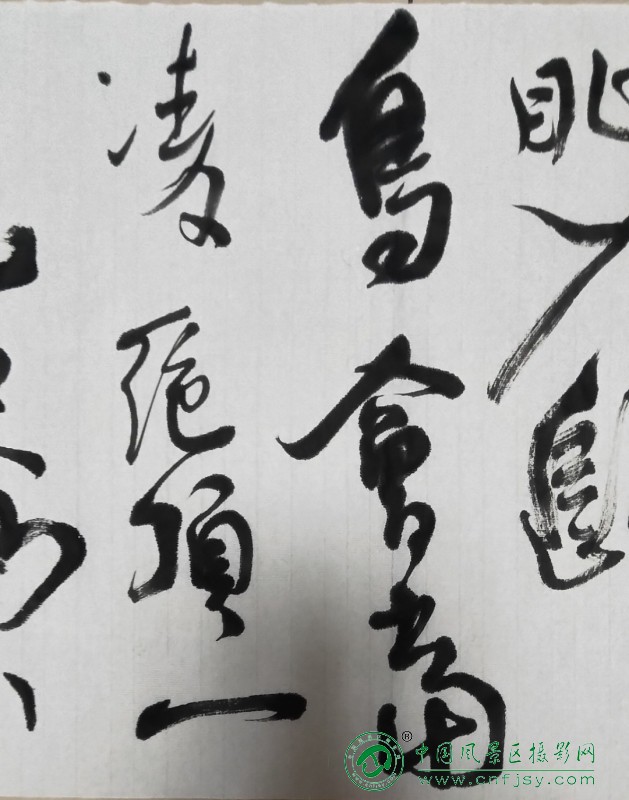 眦入歸
鳥會當
凌絕頂一
山
®
中国风景区摄影网
www.cnfjsy.com